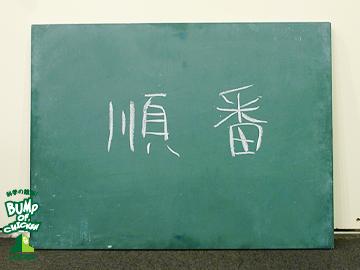 順番
BUMP
OF
CHICKEN